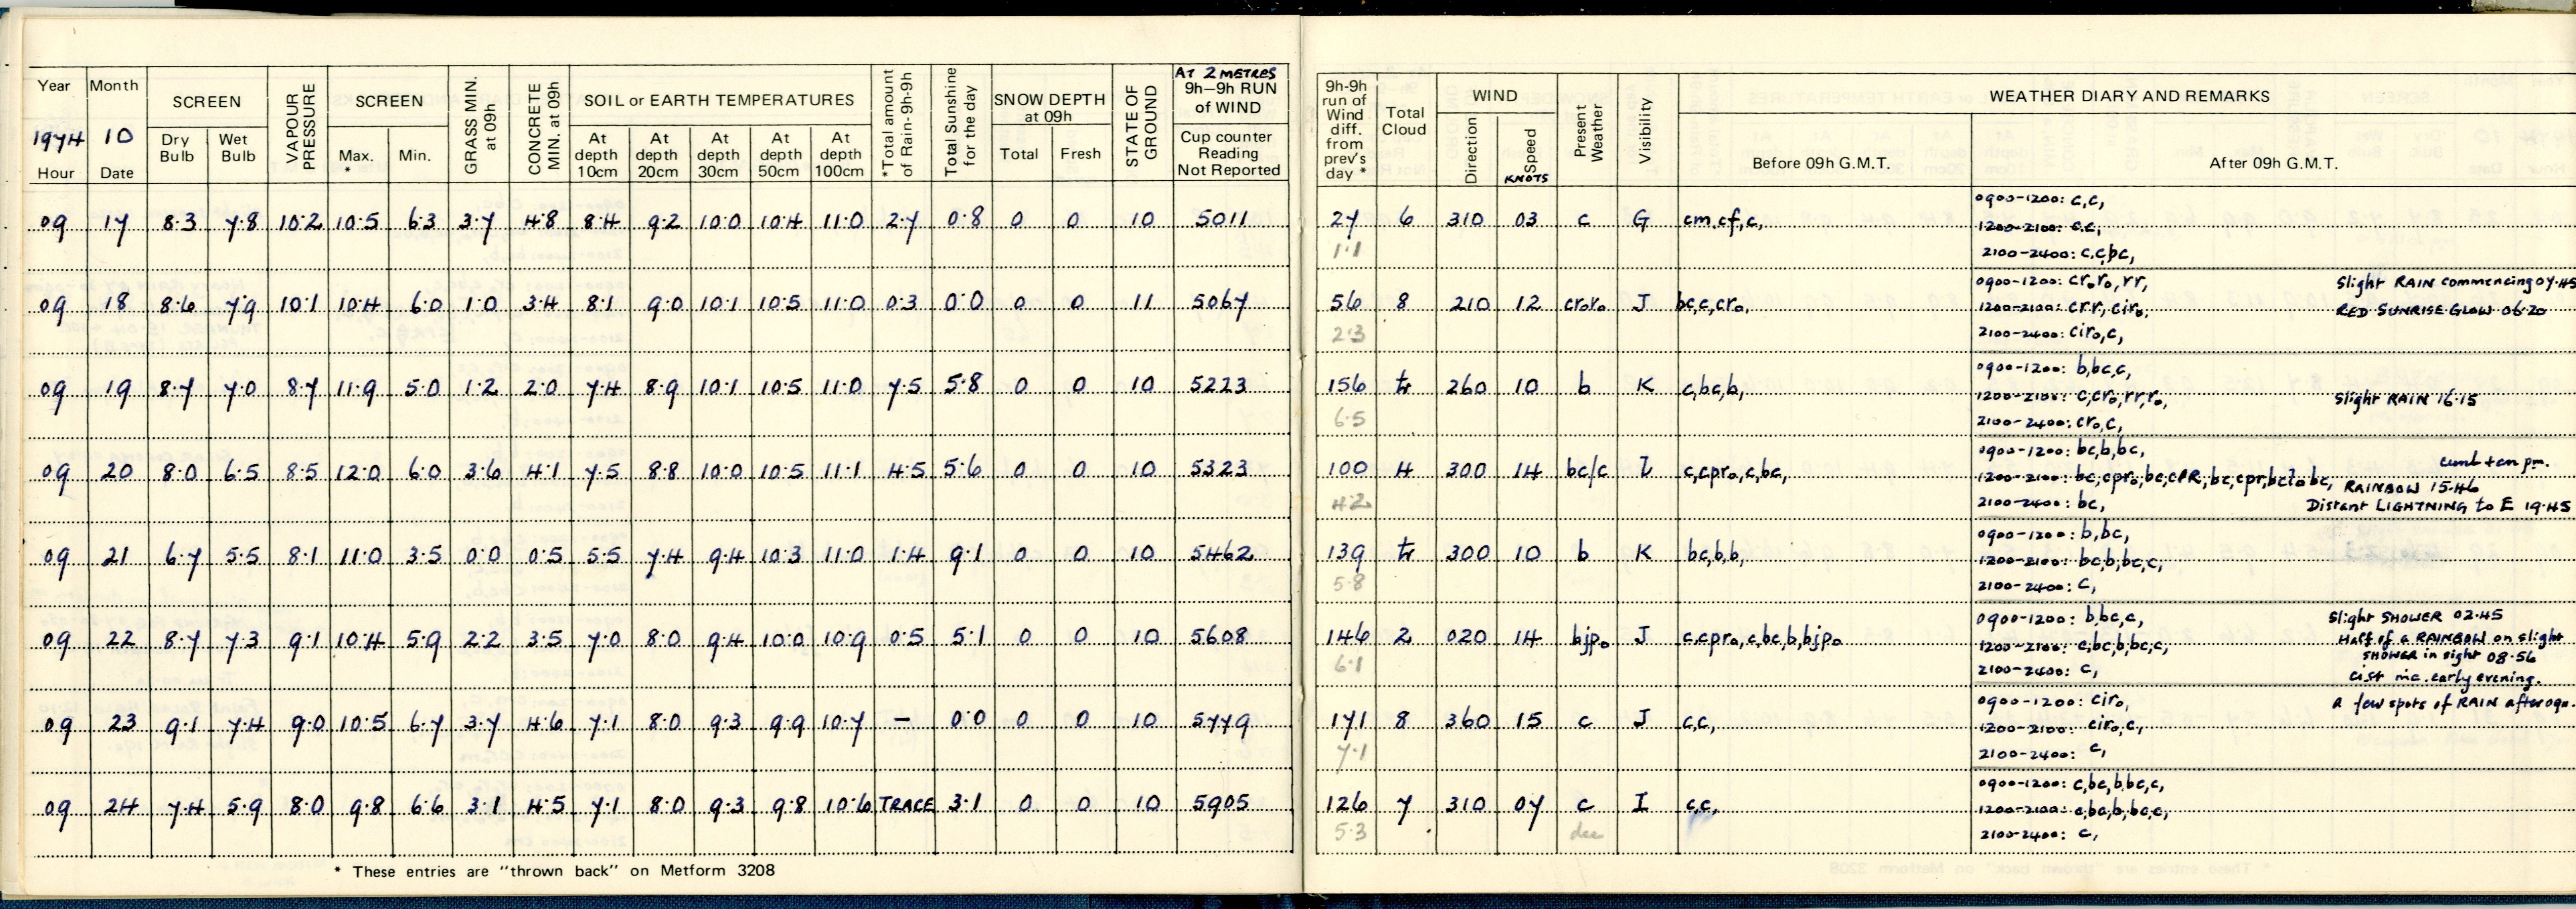 Year Month SCREEN VAPOUR PRESSURE SCREEN GRASS MIN. at 09h CONCRETE MIN. at 09h SOIL or EARTH TEMPERATURES *Total amount of Rain-9h-9h Total Sunshine for the day SNOW DEPTH at 09h STATE OF GROUND AT 2 METRES 9h–9h RUN of WIND
1974 10 Dry Bulb Wet Bulb Max. * Min. At depth 10cm At depth 20cm At depth 30cm At depth 50cm At depth 100cm Total Fresh Cup counter Reading Not Reported
Hour Date
09 17 8·3 7·8 10·2 10·5 6·3 3·7 4·8 8·4 9·2 10·0 10·4 11·0 2·7 0·8 0 0 10 5011
09 18 8·6 7·9 10·1 10·4 6·0 1·0 3·4 8·1 9·0 10·1 10·5 11·0 0·3 0·0 0 0 11 5067
09 19 8·7 7·0 8·7 11·9 5·0 1·2 2·0 7·4 8·9 10·1 10·5 11·0 7·5 5·8 0 0 10 5223
09 20 8·0 6·5 8·5 12·0 6·0 3·6 4·1 7·5 8·8 10·0 10·5 11·1 4·5 5·6 0 0 10 5323
09 21 6·7 5·5 8·1 11·0 3·5 0·0 0·5 5·5 7·4 9·4 10·3 11·0 1·4 9·1 0 0 10 5462
09 22 8·7 7·3 9·1 10·4 5·9 2·2 3·5 7·0 8·0 9·4 10·0 10·9 0·5 5·1 0 0 10 5608
09 23 9·1 7·4 9·0 10·5 6·7 3·7 4·6 7·1 8·0 9·3 9·9 10·7 – 0·0 0 0 10 5779
09 24 7·4 5·9 8·0 9·8 6·6 3·1 4·5 7·1 8·0 9·3 9·8 10·6 TRACE 3·1 0 0 10 5905
* These entries are "thrown back" on Metform 3208
9h-9h run of Wind diff. from prev's day * Total Cloud WIND Present Weather Visibility WEATHER DIARY AND REMARKS
Direction Speed KNOTS Before 09h G.M.T. After 09h G.M.T.
27 6 310 03 c G cm,cf,c, 0900-1200: c,c,
1·1 1200-2100: c.c,
2100-2400: c.c,bc,
56 8 210 12 cr₀r₀ J bc,c,cr₀, 0900-1200: cr₀r₀,rr, Slight RAIN commencing 07·45
2·3 1200-2100: crr, cir₀, RED SUNRISE GLOW 06·20
2100-2400: cir₀,c,
156 tr 260 10 b K c,bc,b, 0900-1200: b,bc,c,
6·5 1200-2100: c,cr₀,rr,r₀, Slight RAIN 16·15
2100-2400: cr₀,c,
100 4 300 14 bc/c I c,cpr₀,c,bc, 0900-1200: bc,b,bc, pm.
4·2 1200-2100: bc,cpr₀,bc,cPR,bc,cpr,bc RAINBOW 15·46
2100-2400: bc, Distant LIGHTNING to E 19·45
139 tr 300 10 b K bc,b,b, 0900-1200: b,bc,
5·8 1200-2100: bc,b,bc,c,
2100-2400: c,
146 2 020 14 bjp₀ J c,cpr₀,c,bc,b,bjp₀ 0900-1200: b,bc,c, Slight SHOWER 02·45
6·1 1200-2100: c,bc,b,bc,c, Half of a RAINBOW on slight
SHOWER in sight 08·56
2100-2400: c, early evening.
171 8 360 15 c J c,c, 0900-1200: cir₀, a few spots of RAIN after
7·1 1200-2100: cir₀,c,
2100-2400: c,
126 7 310 07 c I c,c, 0900-1200: c,bc,b,bc,c,
5·3 1200-2100: c,bc,b,bc,c,
2100-2400: c,